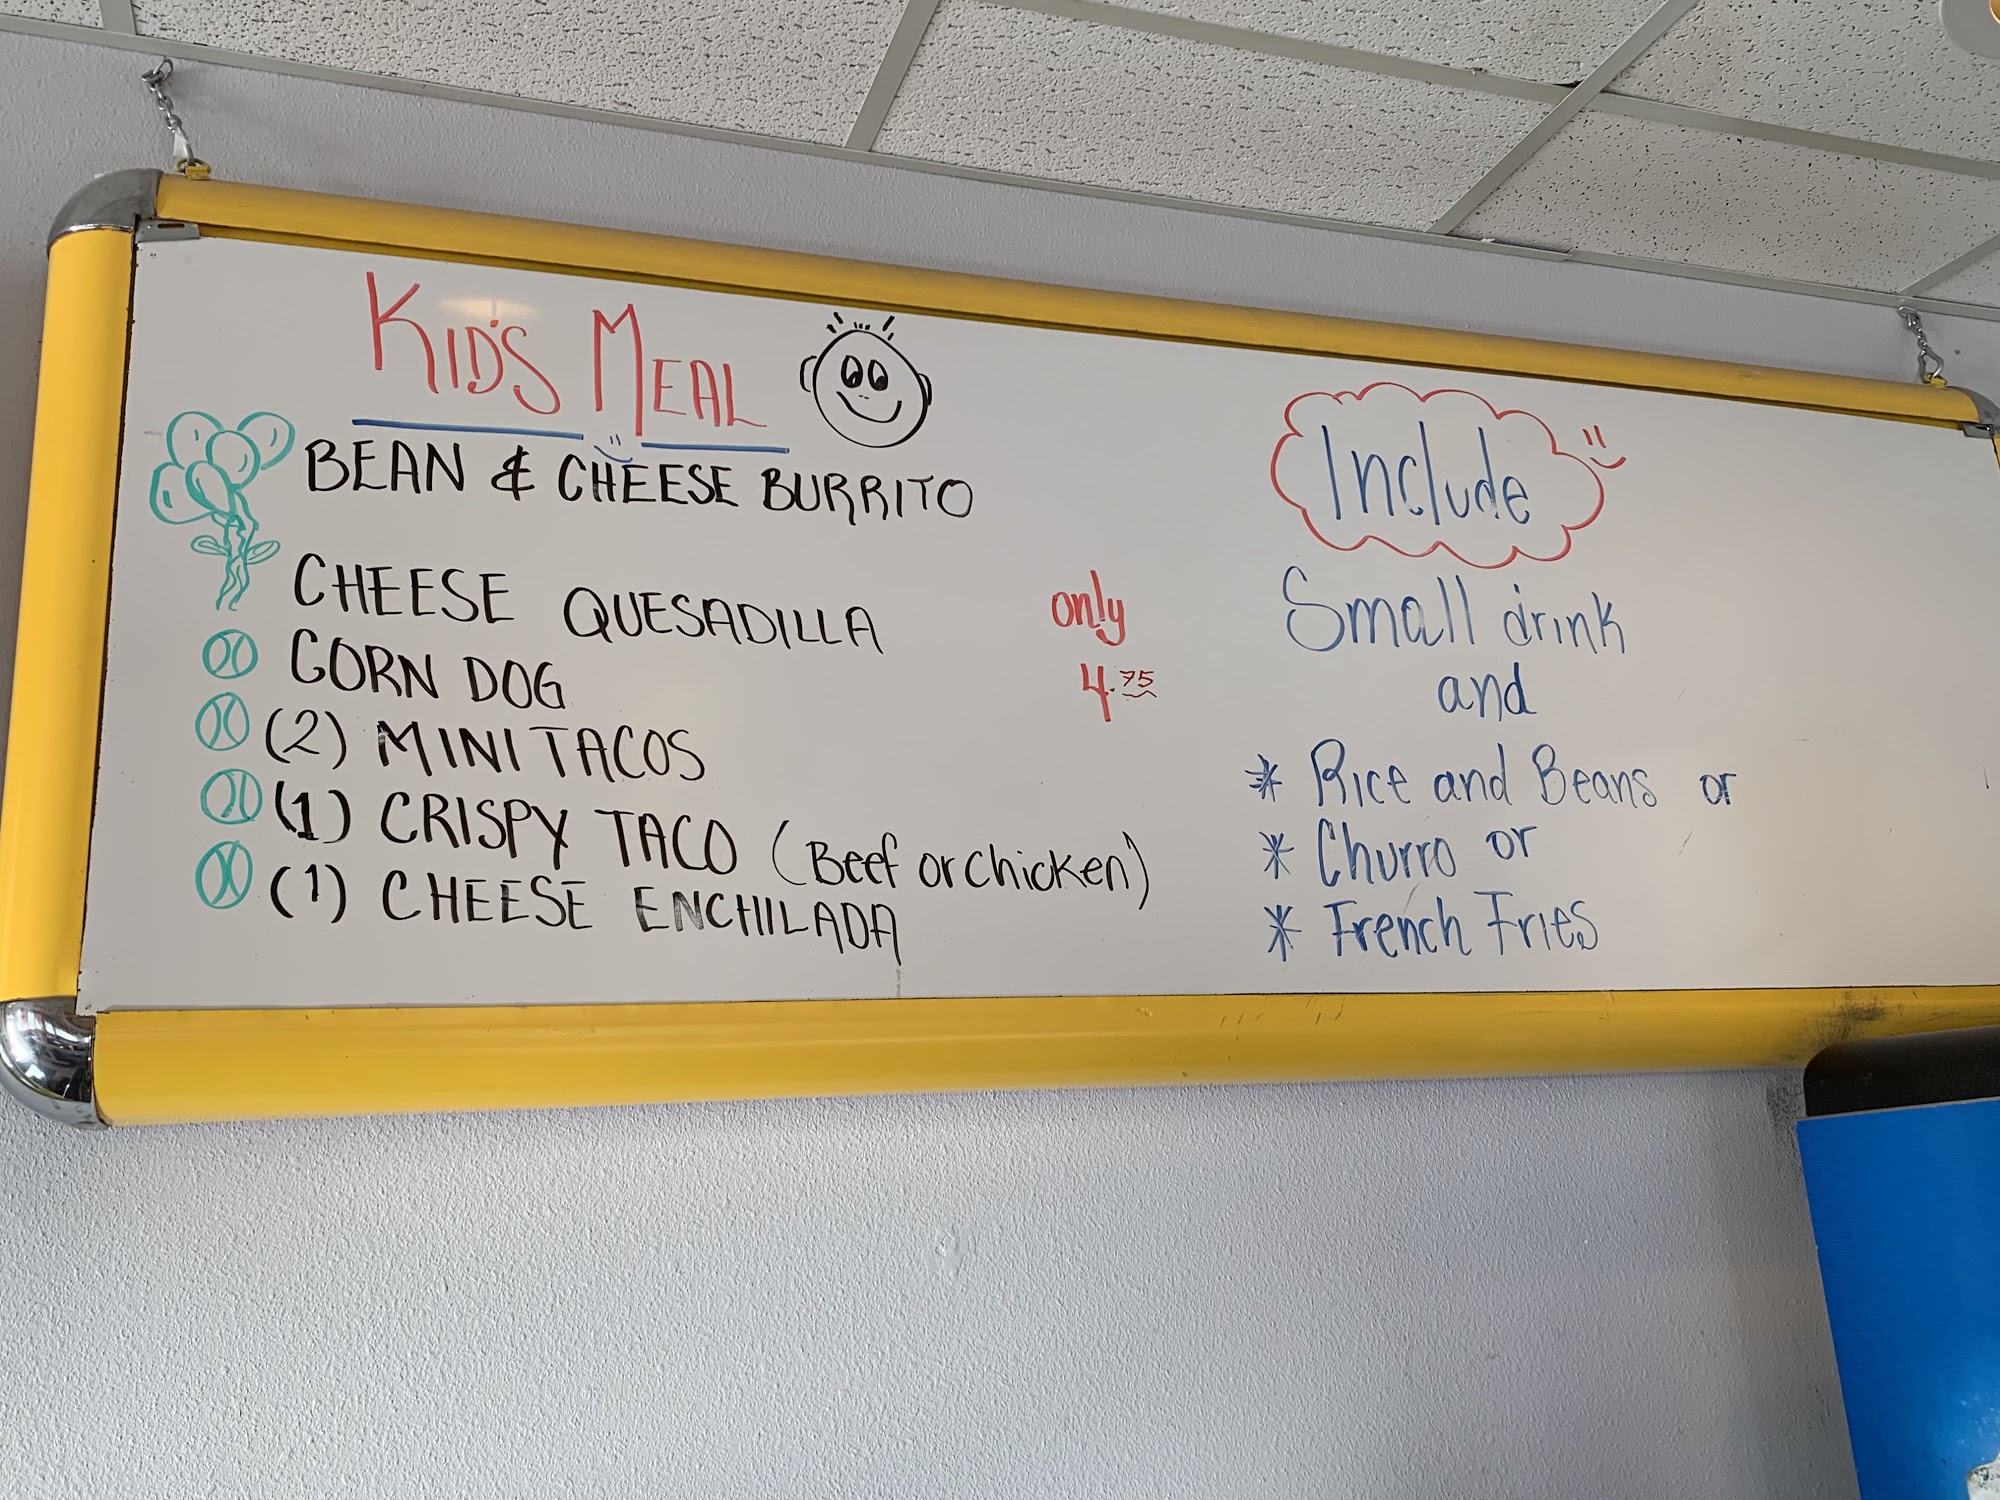 KID'S MEAL
BEAN & CHEESE BURRITO
CHEESE QUESADILLA
CORN DOG
(2) MINI TACOS
(1) CRISPY TACO (Beef or chicken)
(1) CHEESE ENCHILADA
only
4.75
Include
Small drink
and
* Rice and Beans or
* Churro or
* French Fries